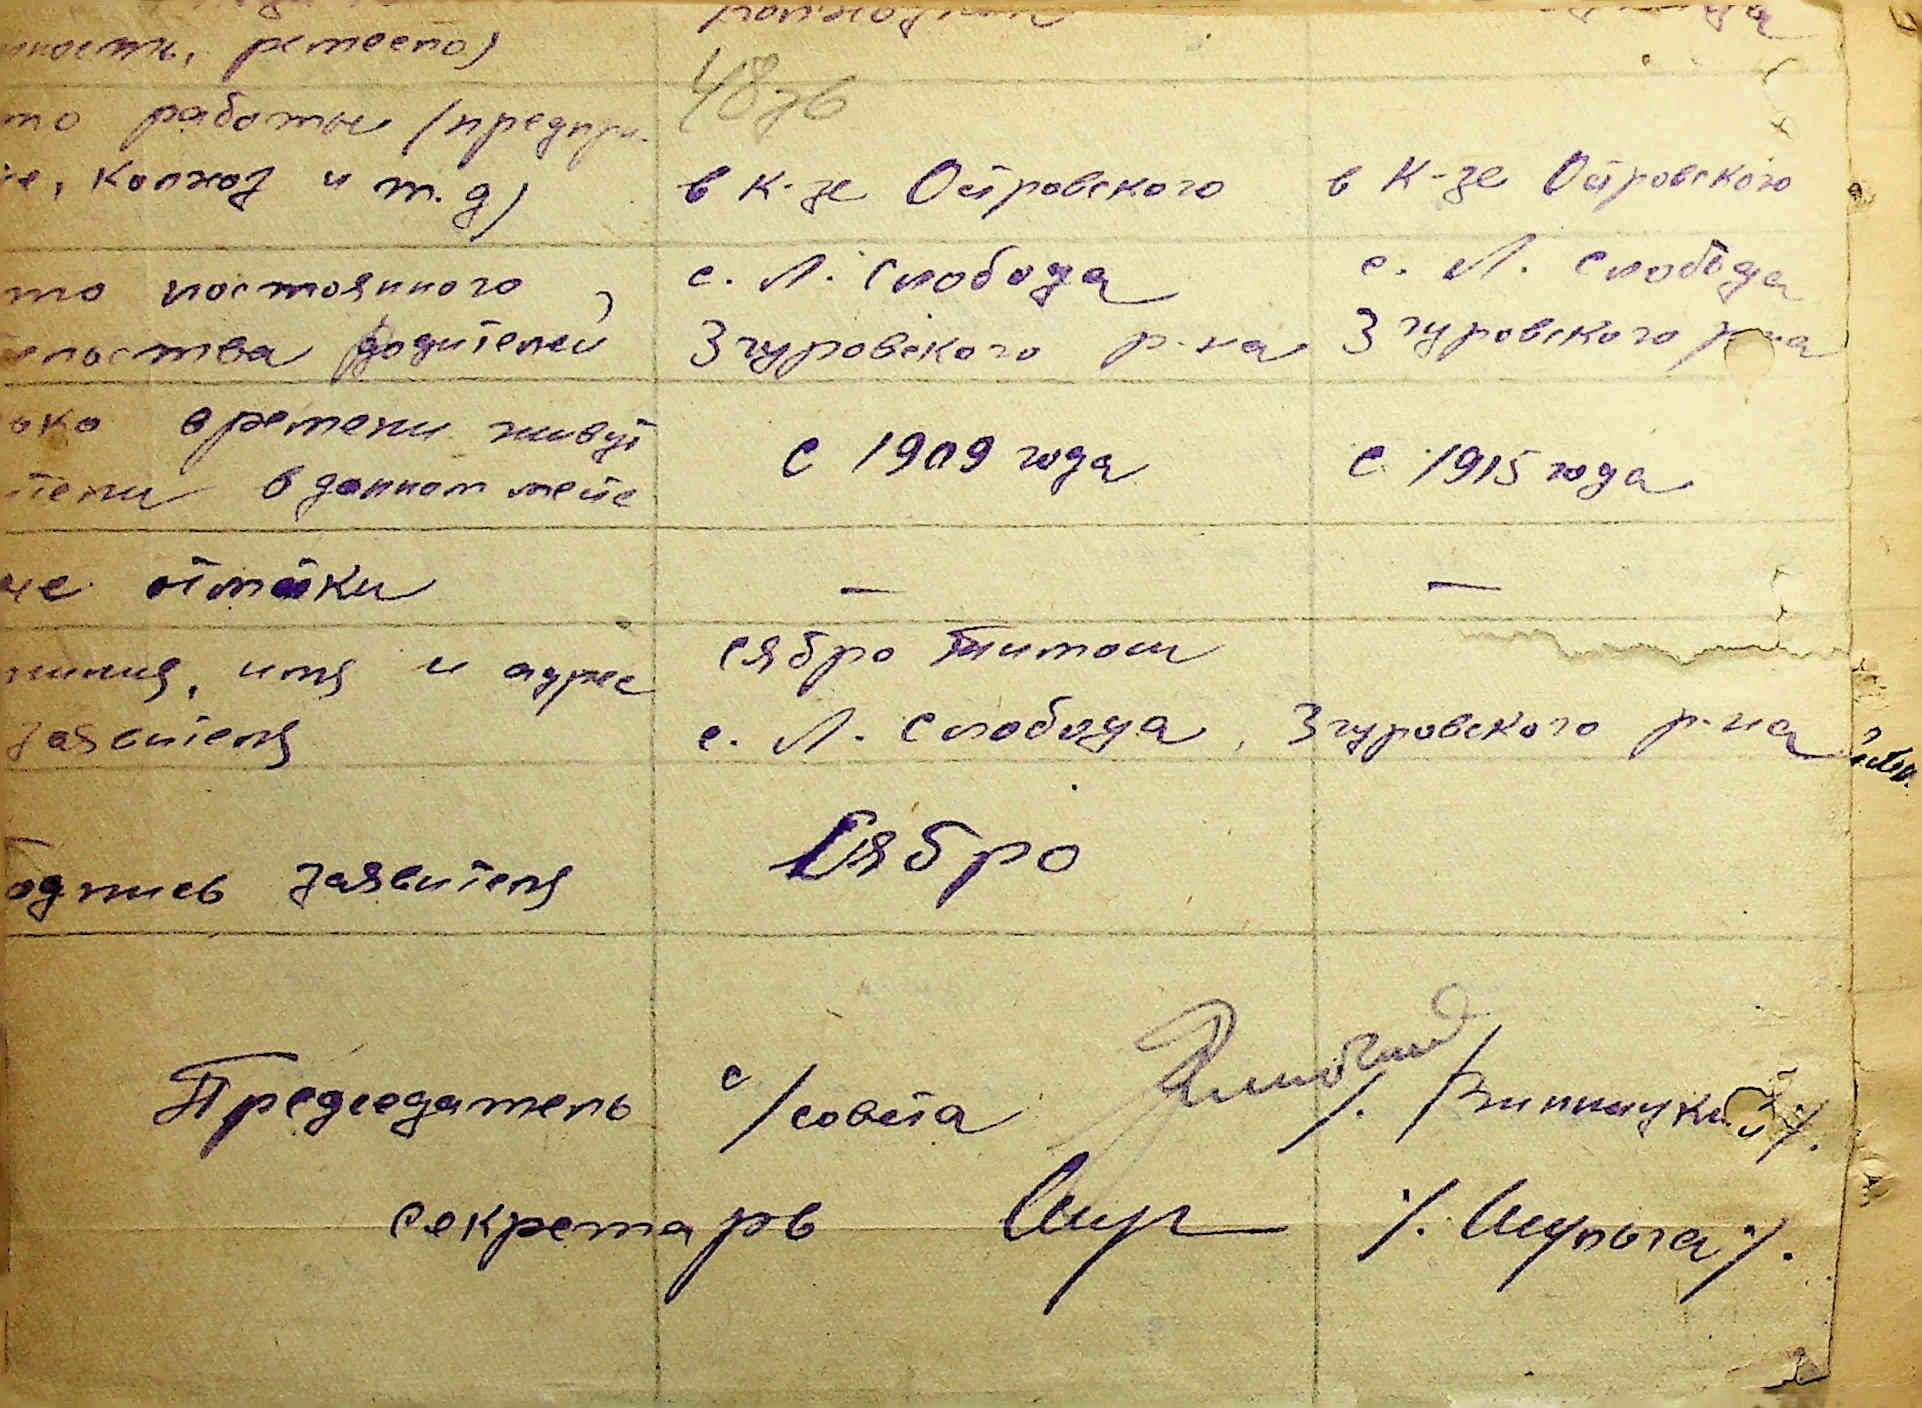 ности, ремесло)
то работы (предпри-
ие, колхоз и т.д)
в к-зе Островского
в к-зе Островского
то постоянного
ельства родителей
с. Л. Слобода
Згуровского р-на
с. Л. Слобода
Згуровского р-на
ько времени живут
тели в данном месте
с 1909 года
с 1915 года
ие отметки
—
—
милия, имя и адрес
заявителя
Сябро
с. Л. Слобода, Згуровского р-на
одпись заявителя
Сябро
Председатель с/совета
секретарь